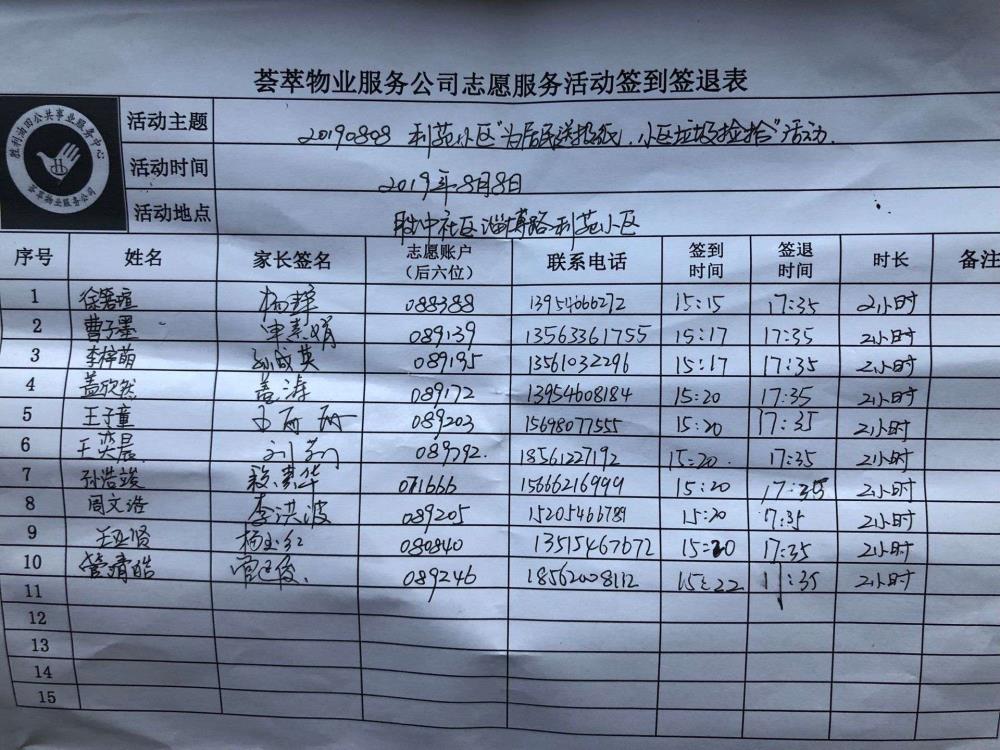 荟萃物业服务公司志愿服务活动签到签退表
胜利油田公共事业服务中心
荟萃物业服务公司
活动主题 20190808 利苑小区"为居民送报纸,小区垃圾捡拾"活动.
活动时间 2019年8月8日
活动地点 胜中社区淄博路利苑小区
序号 姓名 家长签名 志愿账户(后六位) 联系电话 签到时间 签退时间 时长 备注
1 徐箬瑄 杨静 088388 13954666272 15:15 17:35 2小时
2 曹子墨 申素娟 089139 13563361755 15:17 17:35 2小时
3 李梓萌 孙成英 089195 13561032296 15:17 17:35 2小时
4 盖欣然 盖涛 089172 13954608184 15:20 17:35 2小时
5 王子童 089203 15698077555 15:20 17:35 2小时
6 王奕晨 刘莉 089292. 18561227192 15:20. 17:35 2小时
7 孙浩竣 071666 15666216999 15:20 17:35 2小时
8 周文浩 李洪波 089205 15205466789 15:20 17:35 2小时
9 王亚贤 杨玉红 080840 13515467672 15:20 17:35 2小时
10 管清皓 089246 18562008112 15:22 17:35 2小时
11
12
13
14
15